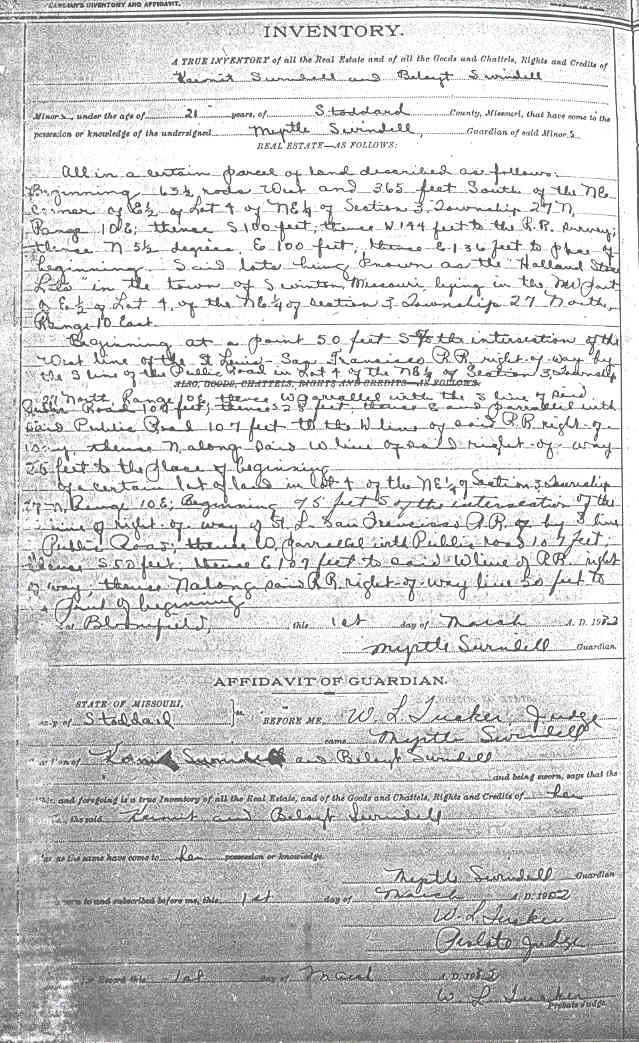 GUARDIAN'S INVENTORY AND AFFIDAVIT.
INVENTORY.
A TRUE INVENTORY of all the Real Estate and of all the Goods and Chattels, Rights and Credits of
Kermit Swindell and Beloyt Swindell
Minors, under the age of 21 years, of Stoddard County, Missouri, that have come to the
possession or knowledge of the undersigned Myrtle Swindell, Guardian of said Minors
REAL ESTATE—AS FOLLOWS:
All in a certain parcel of land described as follows:
Beginning 63½ rods West and 365 feet South of the NE
Corner of E½ of Lot 4 of NE¼ of Section 3, Township 27 N,
Range 10E; thence S 100 feet, thence W 144 feet to the R.R. Survey;
thence N 5½ degrees, E 100 feet, thence E 136 feet to place of
beginning. Said lots being known as the "Holland Store
Lots" in the town of Swinton, Missouri, lying in the NW Part
of E½ of Lot 4, of the NE¼ of Section 3, Township 27 North,
Range 10 East.
Beginning at a point 50 feet S of the intersection of the
West line of the St Louis-San Francisco R.R. right-of-way by
the S line of the Public Road in Lot 4 of the NE¼ of Section 3, Township
ALSO, GOODS, CHATTELS, RIGHTS AND CREDITS—AS FOLLOWS:
27 North, Range 10E, thence W parrallel with the S line of said
Public Road 107 feet, thence S 25 feet, thence E and parrallel with
said Public Road 107 feet to the W line of said R.R. right-of-
way, thence N along said W line of said right-of-way
25 feet to the place of beginning
Of a certain lot of land in Lot 4 of the NE¼ of Section 3, Township
27-N, Range 10E; Beginning 75 feet S of the intersection of the
line of right-of-way of St. L. San Francisco R.R. by S line
Public Road; thence W parrallel with Public road 107 feet,
thence S 50 feet, thence E 107 feet to said W line of R.R. right
of way, thence N along said R.R. right-of-way line 50 feet to
Point of beginning
at Bloomfield, this 1st day of March A. D. 19
Myrtle Swindell Guardian.
AFFIDAVIT OF GUARDIAN.
STATE OF MISSOURI,
County of Stoddard ss BEFORE ME, W. L. Tucker, Judge
came Myrtle Swindell
Kermit Swindell and Beloyt Swindell
and being sworn, says that the
and foregoing is a true Inventory of all the Real Estate, and of the Goods and Chattels, Rights and Credits of her
the said Kermit and Beloyt Swindell
as the same have come to her possession or knowledge.
Myrtle Swindell Guardian
Sworn to and subscribed before me, this 1st day of March A. D. 19
W. L. Tucker
Probate Judge
Record this 1st day of March A. D. 19
W. L. Tucker
Probate Judge.